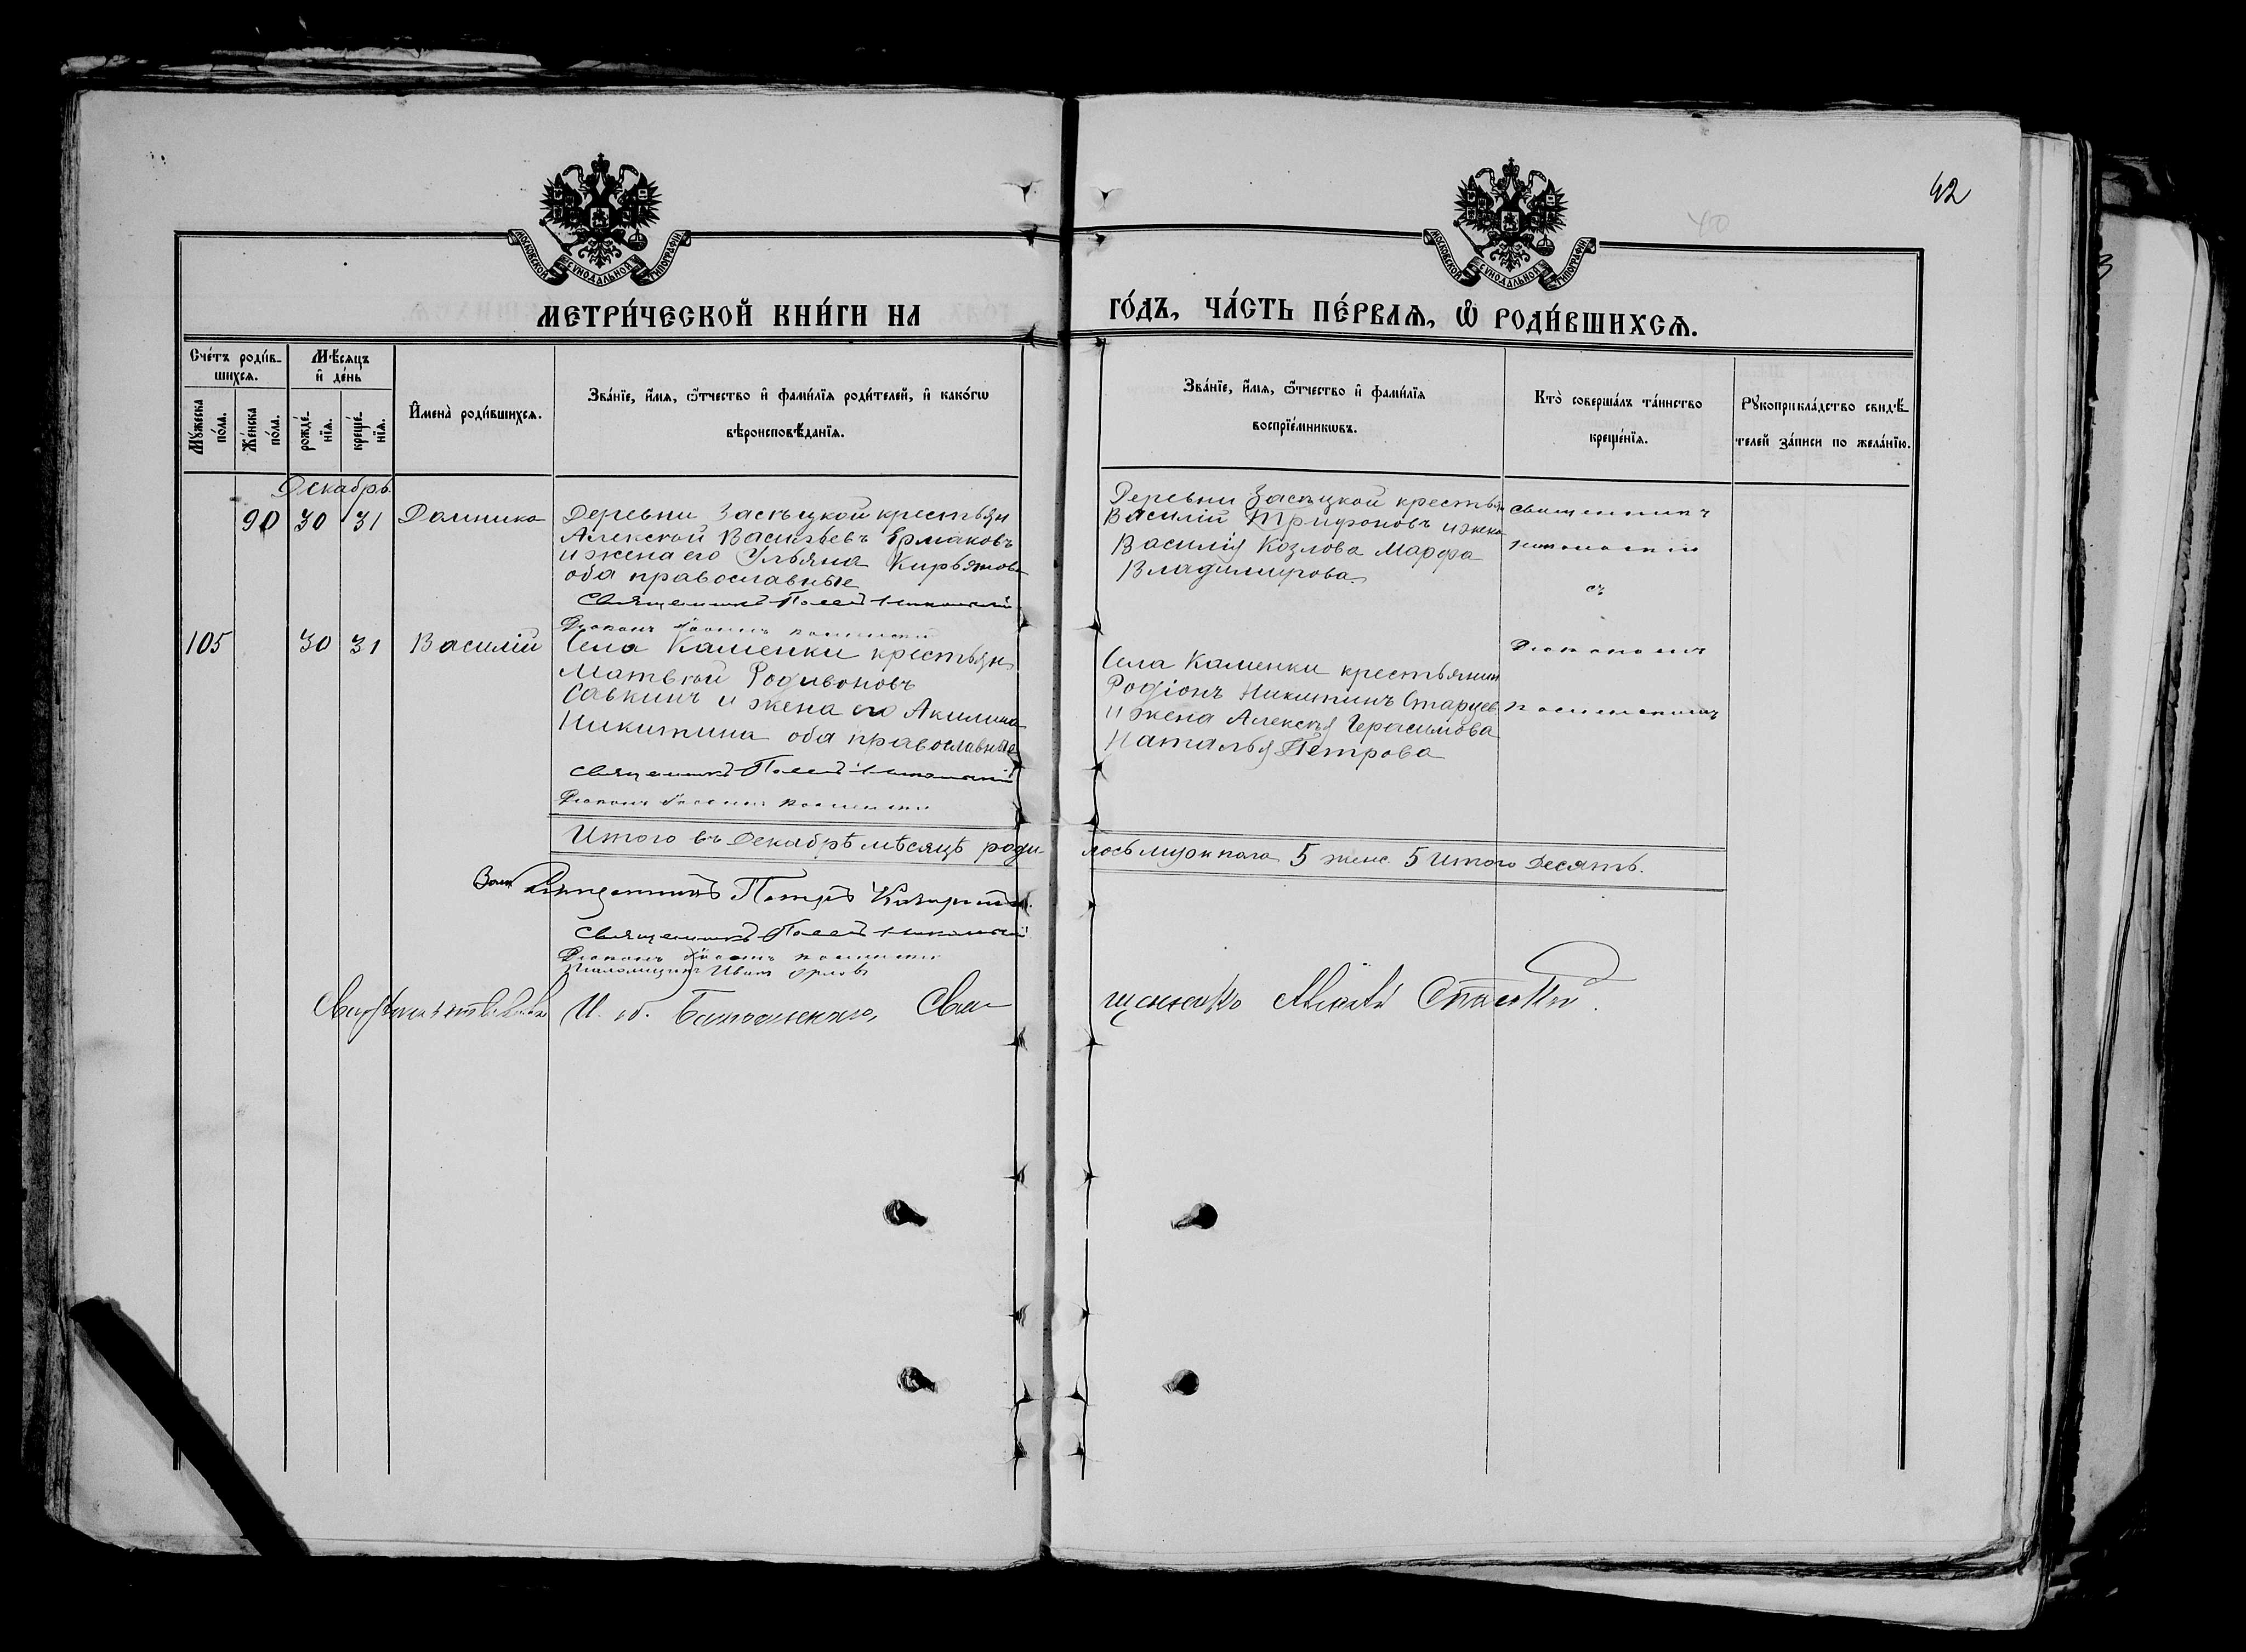 42
40
МОСКОВСКОЙ СУНОДАЛЬНОЙ ТИПОГРАФІИ
МОСКОВСКОЙ СУНОДАЛЬНОЙ ТИПОГРАФІИ
МЕТРИ́ЧЕСКОЙ КНИ́ГИ НА
ГО́ДЪ, ЧА́СТЬ ПЕ́РВАѦ, Ѡ҆ РОДИ́ВШИХСѦ.
Сче́тъ роди́в-
шихсѧ.
Мꙋ́жеска
по́ла.
Же́нска
по́ла.
Мѣ́сѧцъ
и҆ де́нь
рожде́-
нїѧ.
креще́-
нїѧ.
И҆мена̀ роди́вшихсѧ.
Зва́нїе, и҆́мѧ, ѻ҆́тчество и҆ фами́лїѧ роди́телей, и҆ како́гѡ
вѣроисповѣ́данїѧ.
Зва́нїе, и҆́мѧ, ѻ҆́тчество и҆ фами́лїѧ
воспрїе́мникѡвъ.
Кто̀ соверша́лъ та́инство
креще́нїѧ.
Рꙋкоприкла́дство свидѣ́-
телей за́писи по жела́нїю.
Декабрь
90 30 31 Домника
Деревни Засѣцкой крестьян
Алексѣй Васильевъ Ермаковъ
и жена его Ульяна Кирьянова
оба православные
Священникъ
Діаконъ
Деревни Засѣцкой крестьян
Василій Трифоновъ и жена
Василія Козлова Марфа
Владимирова
Священникъ
съ
Діакономъ
105 30 31 Василій
Села Каменки крестьян
Матвѣй Родивоновъ
Савкинъ и жена его Акилина
Никитина оба православные
Священникъ
Діаконъ
Села Каменки крестьянин
Родіонъ Никитинъ Старцев
и жена Алексѣя Герасимова
Наталья Петрова
Итого въ Декабрѣ мѣсяцѣ роди-
лось мужи пола 5 женс. 5 Итого Десять.
Священникъ Петръ
Священникъ
Діаконъ
Псаломщикъ Иванъ Орловъ
И. об. Благочиннаго, Свя-
щенникъ